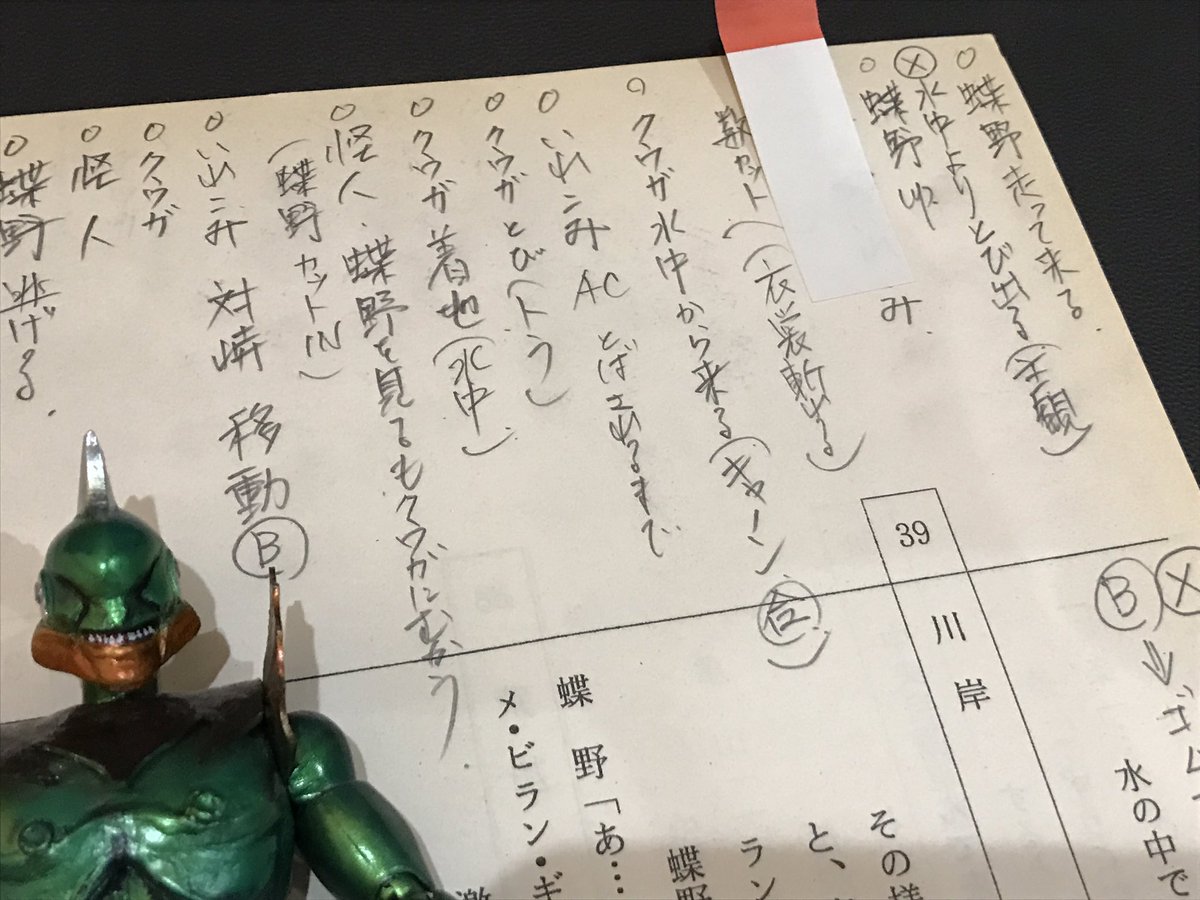 ○ 蝶野走って来る。
Ⓧ 水中よりとび出る(主観)
○ 蝶野 UP
み.
数カット(衣装斬れる)
○ クウガ水中から来る(キャーン 合)
○ いれこみ AC とばされるまで
○ クウガとび(トウ)
○ クウガ着地(水中)
○ 怪人.蝶野を見るもクウガにむかう.
(蝶野カットIN)
○ いれこみ 対峙 移動Ⓑ
○ クウガ
○ 怪人
○ 蝶野逃げる.
Ⓧ
Ⓑ⇒ギ
水の中で
39
川岸
その様
と、
ラン
蝶野
蝶野「あ…
メ・ビラン・ギ
激